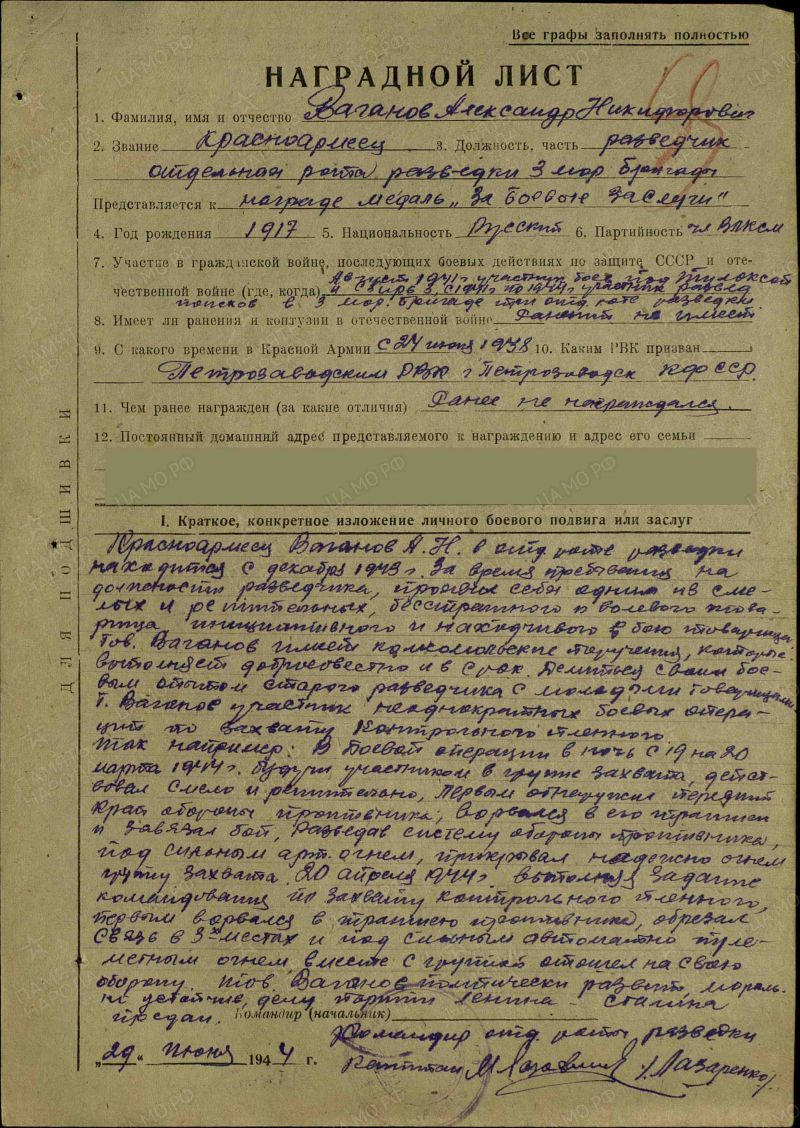 Все графы заполнять полностью
НАГРАДНОЙ ЛИСТ
1. Фамилия, имя и отчество Ваганов Александр Никифорович
2. Звание красноармеец 3. Должность, часть разведчик
отдельная рота разведки 3 мор бригады
Представляется к награде медаль „За боевые заслуги"
4. Год рождения 1917 5. Национальность Русский 6. Партийность чл ВЛКСМ
7. Участие в гражданской войне, последующих боевых действиях по защите СССР и оте-
Август 1941 г участник боев под
чественной войне (где, когда) с 1941 по 1944 г участник развед
поисков в 3 мор. бригаде при отд роте разведки
8. Имеет ли ранения и контузии в отечественной войне Ранений не имеет
9. С какого времени в Красной Армии с 24 июня 1938 10. Каким РВК призван
Петрозаводским РВК г Петрозаводск КФССР
11. Чем ранее награжден (за какие отличия) Ранее не награждался.
12. Постоянный домашний адрес представляемого к награждению и адрес его семьи
I. Краткое, конкретное изложение личного боевого подвига или заслуг
Красноармеец Ваганов А. Н. в отд роте разведки
находится с декабря 1943 г. За время пребывания на
должности разведчика, проявил себя одним из сме-
лых и решительных, бесстрашного и волевого това-
рища, инициативного и находчивого в бою товарища
Тов. Ваганов имеет комсомольские поручения, которые
выполняет добросовестно и в срок. Делиться своим бое-
вым опытом старого разведчика с молодыми товарищами
Т. Ваганов участник неоднократных боевых опера-
ций по захвату контрольного пленного.
Так например: В боевой операции в ночь с 19 на 20
марта 1944 г. будучи участником в группе захвата, дейст-
вовал смело и решительно, первым обнаружил передний
край обороны противника, ворвался в его траншеи
и завязал бой, разведав систему обороны противника,
под сильным арт. огнем, прикрывал надежно огнем
группу захвата. 20 апреля 1944 г. выполняя задание
командования по захвату контрольного пленного,
первым ворвался в траншею противника, обрезал
связь в 3х местах и под сильным автоматно пуле-
метным огнем вместе с группой отошел на свою
оборону. Тов. Ваганов политически развит, мораль-
но устойчив, делу партии Ленина - Сталина
предан. Командир (начальник)
Командир отд. роты разведки
„29" июня 1944 г. капитан /Лазаренко/
ДЛЯ ПОДШИВКИ
ЦАМО РФ